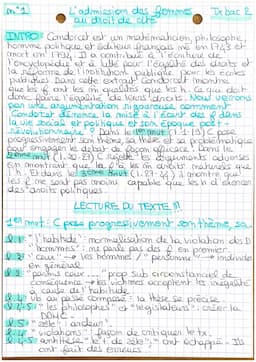 n°1 L'admission des femmes Tr bac R
au droit de cité
INTRO: Condorcet est un mathématicien, philosophe,
homme politique et éditeur français né en 1743 et
mort en 1794. Il a contribué à l'écriture de
l'encyclopédie et a lutté pour l'égalité des droits et
la réforme de l'institution publique pour les écoles
publiques. Dans cette extrait Condorcet montre
que les f ont les m qualités que les h. Ce qui doit
donc faire l'égalité de leurs droits. Nous verrons
par une argumentation rigoureuse comment
Condorcet dénonce la mise à l'écart des f dans
la vie social et politique et son époque post-
révolutionnaire? Dans le 1er mvt (l.1-13) C pose
progressivement son thème, sa thèse et sa problématique
pour engager le débat de façon efficace. Dans le
2ème mvt (l. ) C rejette les arguments adverses
en montrant que les f a les m droits naturels que
l'h. Et dans le 3ème mvt (l. ) il montre que
les f ne sont pas moins capable que les h d'exercer
des droits politiques.
LECTURE DU TEXTE !!!
1er mvt: C pose progressivement son thème, sa
l.1 "l'habitude": normalisation de la violation des D
"hommes": ne parle pas des f en premier.
l.2 "ceux" → les hommes / "personne" → individus
en général
l.2 "parmi ceux ...." prop sub circonstanciel de
conséquence → les victimes acceptent les inégalités
à cause de l'habitude.
l.4 Vb au passé composé: la thèse se précise.
l.4,5 "les philosophes" et "législateurs": créer la
DDHC.
l.5 "zèle": ardeur
l.4 "violations": façon de critiquer le tx.
l.4,5 antithèse "le + de zèle"; "ont échappé" Ils
ont fait des erreurs